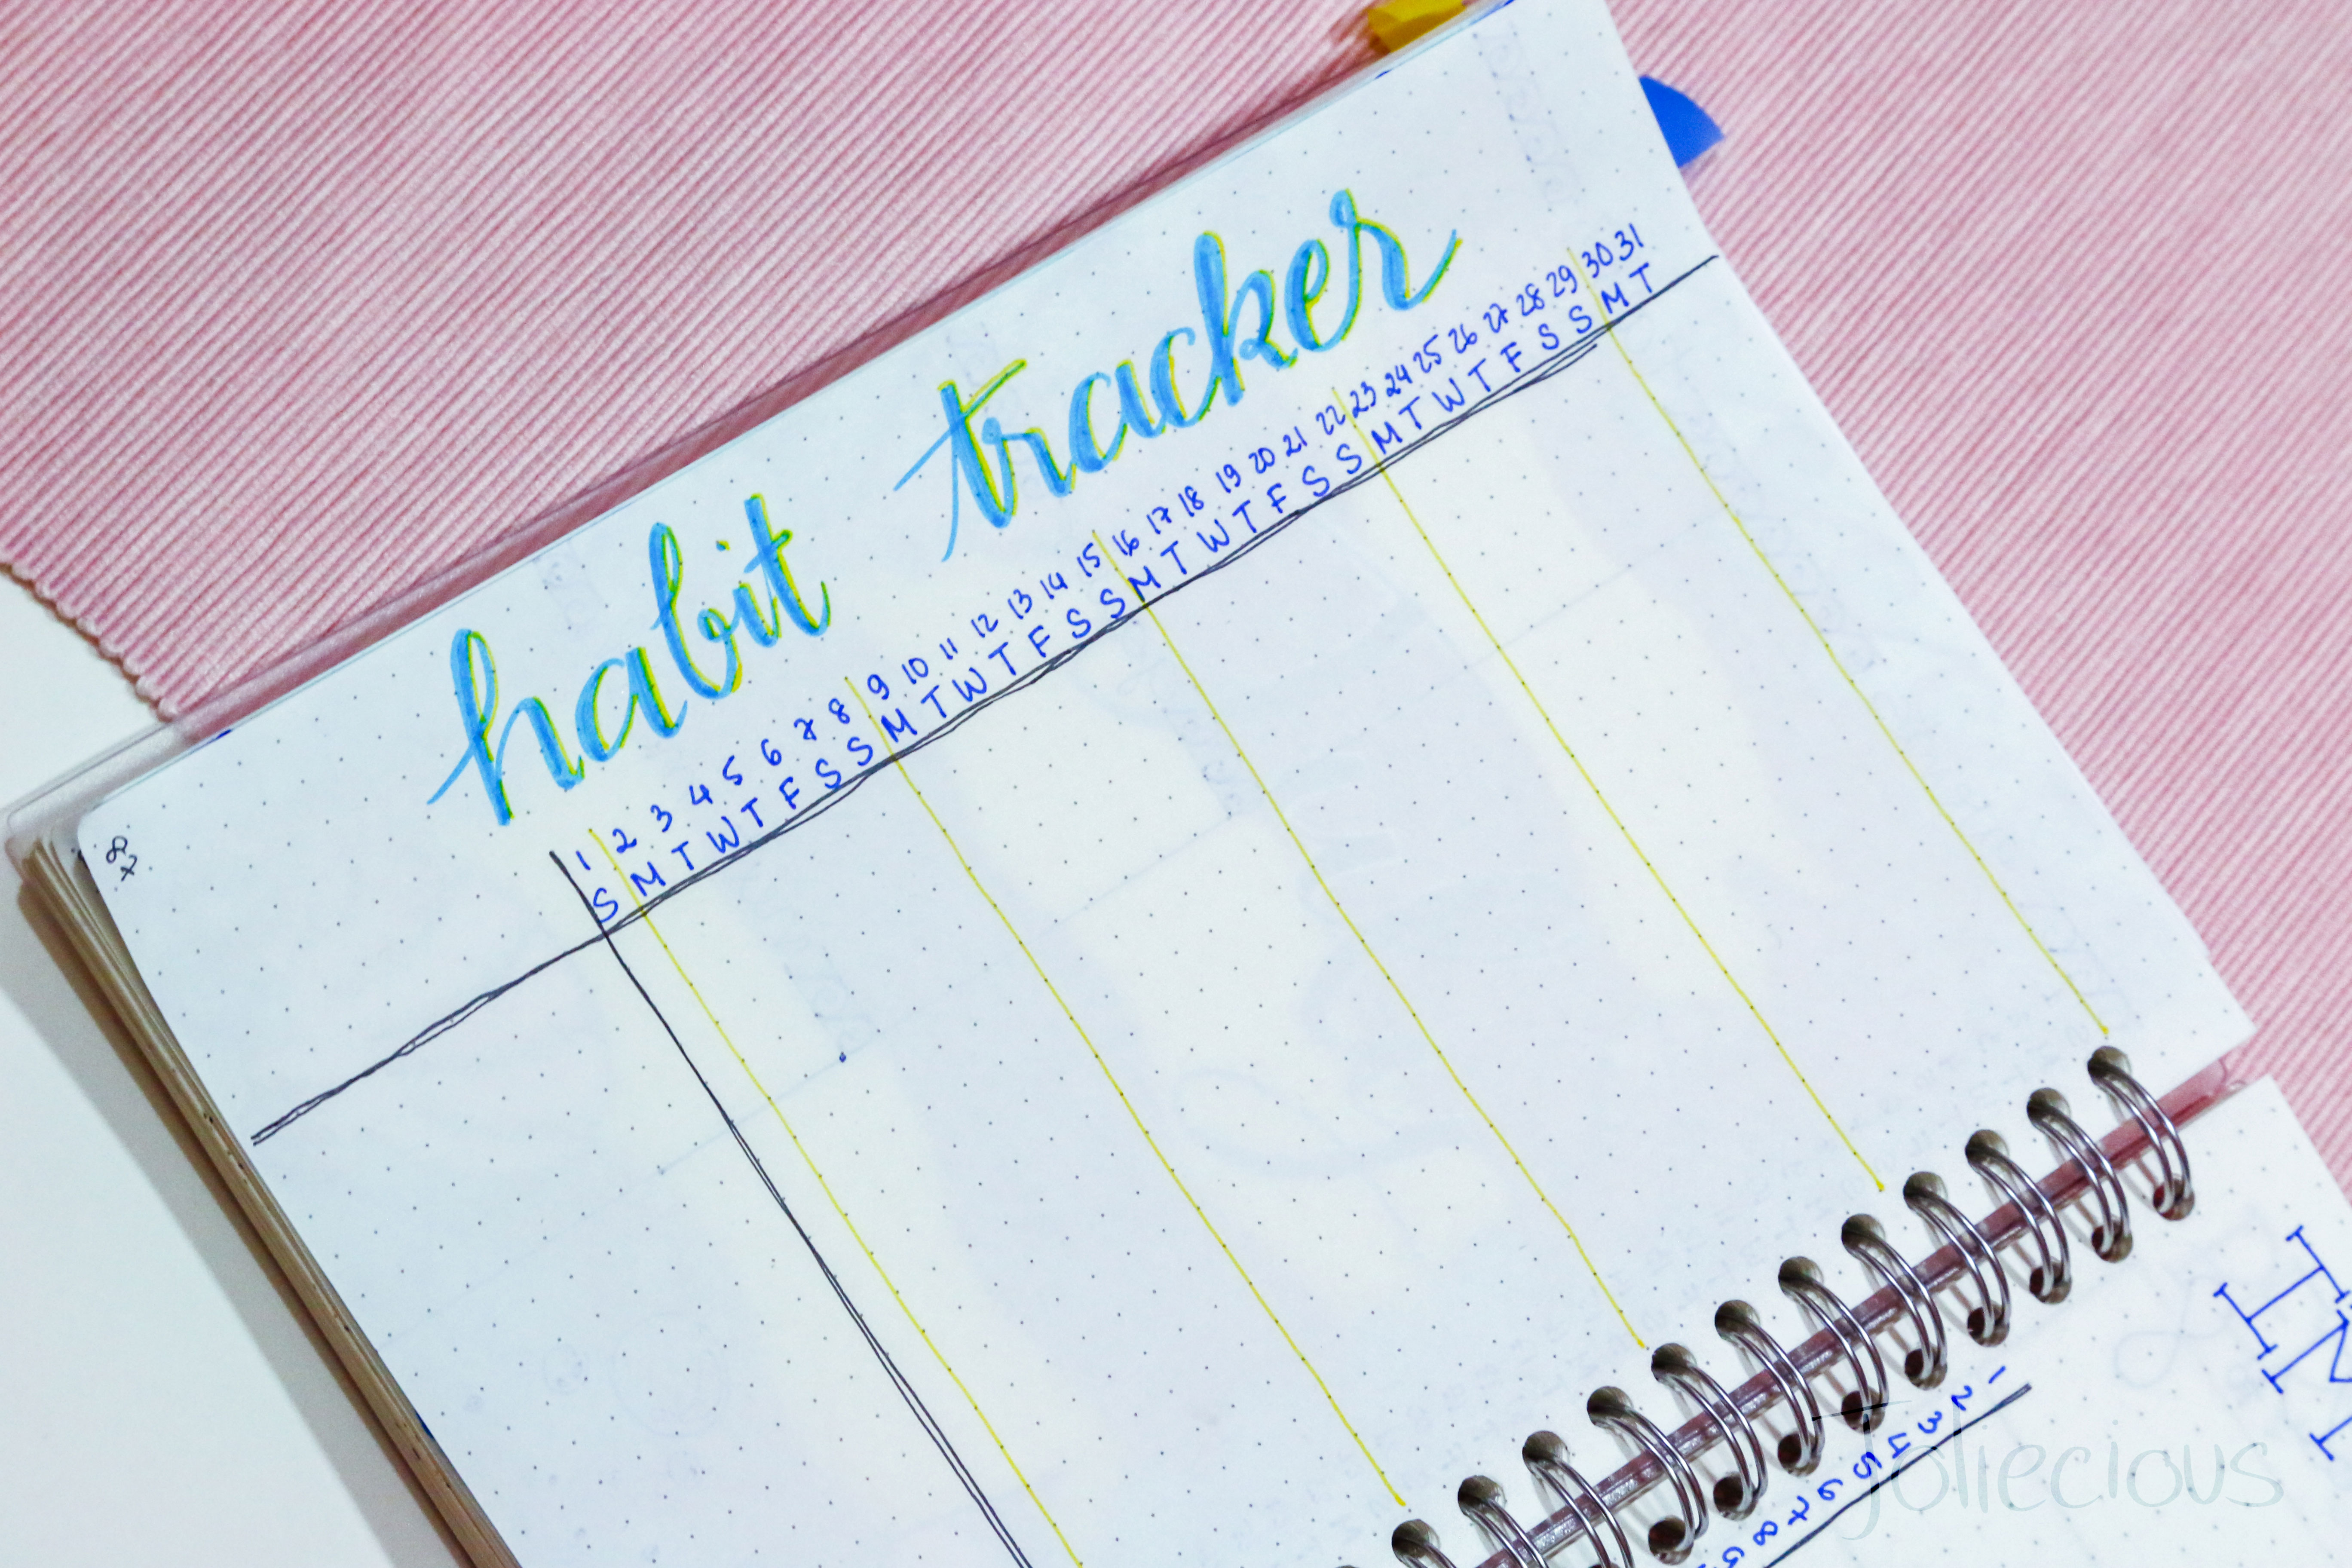 habit tracker
1 2 3 4 5 6 7 8 9 10 11 12 13 14 15 16 17 18 19 20 21 22 23 24 25 26 27 28 29 30 31
S M T W T F S S M T W T F S S M T W T F S S M T W T F S S M T
87
1 2 3 4 5 6 7 8
Joliecious